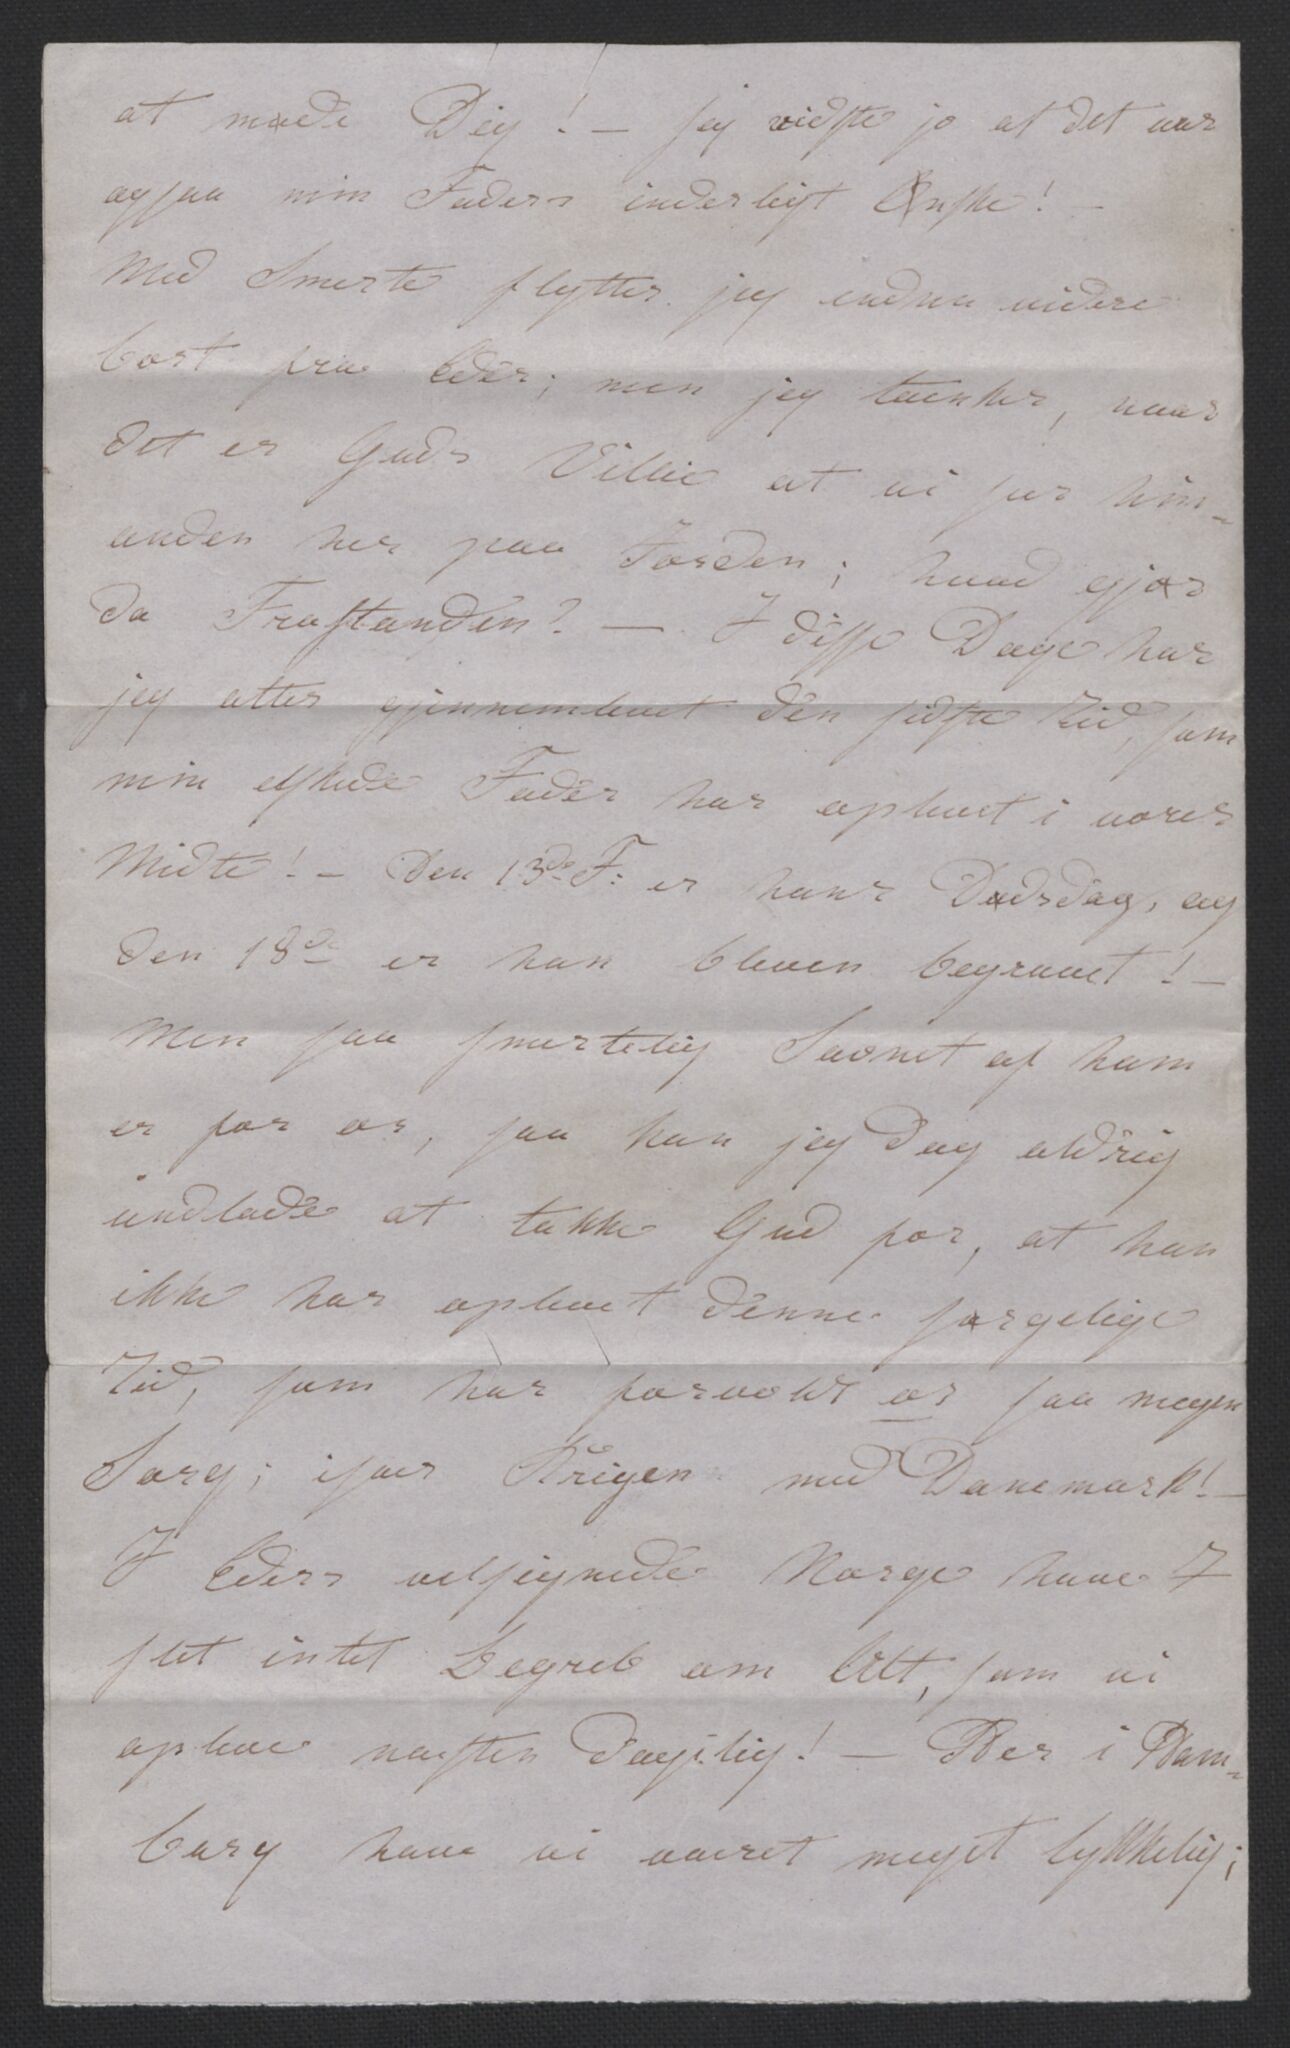 at møde Dig! — jeg vidste jo at det var
ogsaa min Faders inderligt Ønske! —
Med Smerte flytter jeg endnu videre
bort fra Eder; men jeg tænker, naar
det er Guds Villie at vi see hin-
anden her paa Jorden; hvad gjør
da Frastanden? — I disse Dage har
jeg atter gjennemlevet den sidste Tid, som
min elskede Fader har oplevet i vores
Midte! — Den 13de F: er hans Dødsdag, og
den 18de er han bleven begravet! —
Men saa smertelig Savnet af ham
er for os, saa kan jeg dog aldrig
undlade at takke Gud for, at han
ikke har oplevet denne sørgelige
Tid, som har forvoldt os saa megen
Sorg; især Krigen med Danemark! —
I Eders velsignede Norge have I
slet intet Begreb om Alt, som vi
opleve næsten dagilig! — Her i Ham-
burg have vi været meget lykkelig;